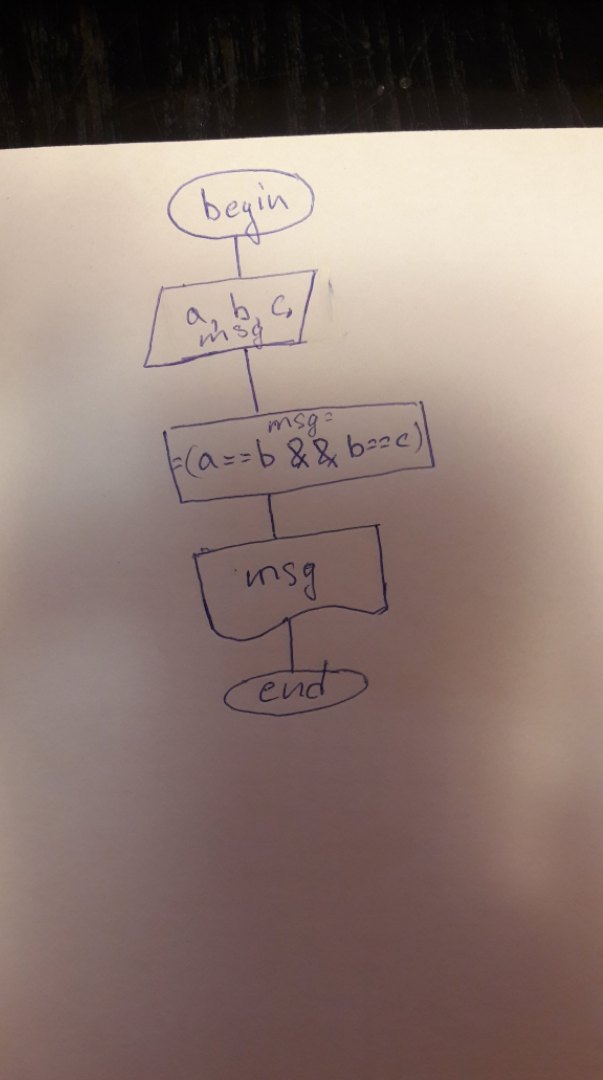 begin
a, b, c,
msg
msg=
=(a==b && b==c)
msg
end